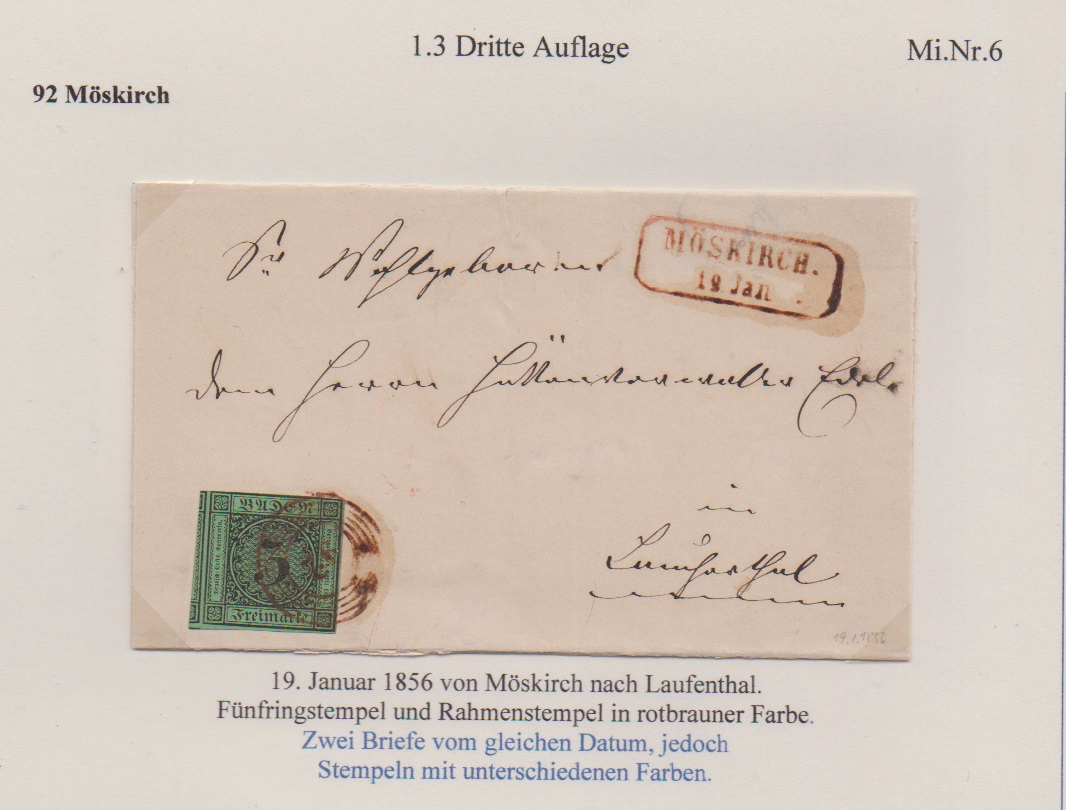 1.3 Dritte Auflage
Mi.Nr.6
92 Möskirch
MÖSKIRCH.
19. Jan
Sr Wohlgeboren
dem Herrn Hüttenverwalter Edel.
BADEN
5
Freimarke
in
Laucherthal
19.1.1856
19. Januar 1856 von Möskirch nach Laufenthal.
Fünfringstempel und Rahmenstempel in rotbrauner Farbe.
Zwei Briefe vom gleichen Datum, jedoch
Stempeln mit unterschiedenen Farben.